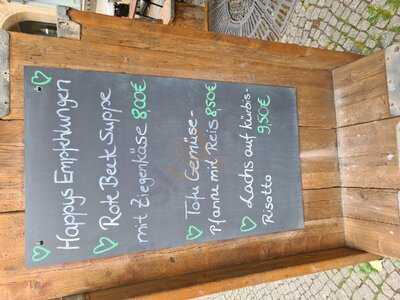 Happys Empfehlungen
Rote Beete Suppe
mit Ziegenkäse 8.00€
Tofu Gemüse-
Pfanne mit Reis 8.50€
Lachs auf Kürbis-
Risotto 9,50€